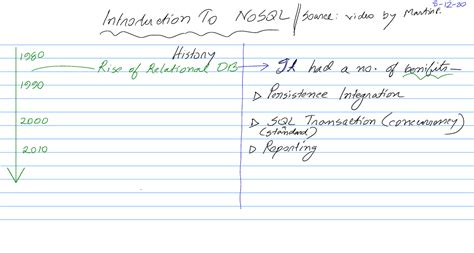 Introduction To NoSQL || source: video by Martin F.
5-12-20
History
1980
Rise of Relational DB → It had a no. of benifits —
1990
▷ Persistence Integration
2000
▷ SQL Transaction (concurrency)
(standard)
2010
▷ Reporting